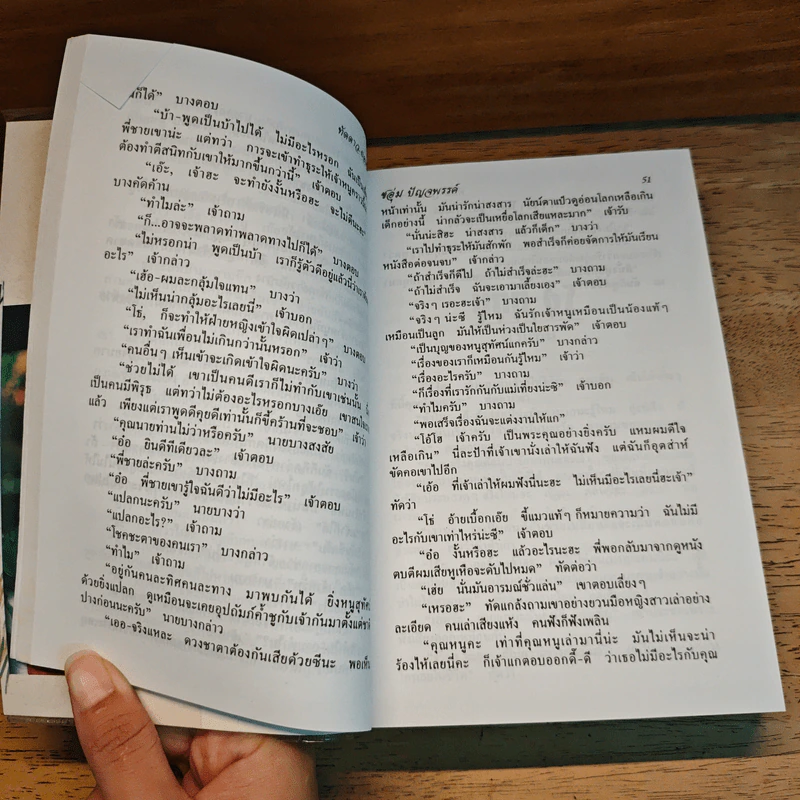 นก็ได้” บางตอบ
“บ้า-พูดเป็นบ้าไปได้ ไม่มีอะไรหรอก ฉันเป็น
พี่ชายเขาน่ะ แต่ทว่า การจะเข้าทำธุระให้เจ้าหนู
ต้องทำตีสนิทกับเขาให้มากขึ้นกว่านี้” เจ้าตอบ
“เอ๊ะ, เจ้าฮะ จะทำยังงั้นหรือฮะ จะไม่ดีนะ
บางคัดค้าน
“ทำไมล่ะ” เจ้าถาม
“ก็...อาจจะพลาดท่าพลาดทางไปก็ได้” บางตอบ
“ไม่หรอกน่า พูดเป็นบ้า เราก็รู้ตัวดีอยู่แล้วนี่ว่า
อะไร” เจ้ากล่าว
“เฮ้อ-ผมละกลุ้มใจแทน” บางว่า
“ไม่เห็นน่ากลุ้มอะไรเลยนี่” เจ้าบอก
“โธ่, ก็จะทำให้ฝ่ายหญิงเข้าใจผิดเปล่าๆ” บางตอบ
“เราทำฉันเพื่อนไม่เกินกว่านั้นหรอก” เจ้าว่า
“คนอื่นๆ เห็นเข้าจะเกิดเข้าใจผิดนะครับ” บางว่า
“ช่วยไม่ได้ เขาเป็นคนดีเราก็ไม่ทำกับเขาเช่นนั้น
เป็นคนมีพิรุธ แต่ทว่าไม่ต้องอะไรหรอกบางเอ๋ย เขาสน
แล้ว เพียงแต่เราพูดดีคุยดีเท่านั้นก็ขี้คร้านที่จะชอบ” เจ้าว่า
“คุณนายท่านไม่ว่าหรือครับ” นายบางสงสัย
“อ๋อ ยินดีทีเดียวละ” เจ้าตอบ
“พี่ชายล่ะครับ” บางถาม
“อ๋อ พี่ชายเขารู้ใจฉันดีว่าไม่มีอะไร” เจ้าตอบ
“แปลกนะครับ” นายบางว่า
“แปลกอะไร?” เจ้าถาม
“โชคชะตาของคนเรา” บางกล่าว
“ทำไม” เจ้าถาม
“อยู่กันคนละทิศคนละทาง มาพบกันได้ ยิ่งหนูสุทัศ
ด้วยยิ่งแปลก ดูเหมือนจะเคยอุปถัมภ์ค้ำชูกับเจ้ากันมาตั้งแต่
ปางก่อนนะครับ” นายบางกล่าว
“เออ-จริงแหละ ดวงชาตาต้องกันเสียด้วยซีนะ พอเห็น
ชอุ่ม ปัญจพรรค์ 51
หน้าเท่านั้น มันน่ารักน่าสงสาร นัยน์ตาแป๋วดูอ่อนโลกเหลือเกิน
เด็กอย่างนี้ น่ากลัวจะเป็นเหยื่อโลกเสียแหละมาก” เจ้ารับ
“นั่นน่ะสิฮะ น่าสงสาร แล้วก็เด็ก” บางว่า
“เราไปทำธุระให้มันสักพัก พอสำเร็จก็ค่อยจัดการให้มันเรียน
หนังสือต่อจนจบ” เจ้ากล่าว
“ถ้าสำเร็จก็ดีไป ถ้าไม่สำเร็จล่ะฮะ” บางถาม
“ถ้าไม่สำเร็จ ฉันจะเอามาเลี้ยงเอง” เจ้าตอบ
“จริงๆ เรอะฮะเจ้า” บางถาม
“จริงๆ น่ะซี รู้ไหม ฉันรักเจ้าหนูเหมือนเป็นน้องแท้ๆ
เหมือนเป็นลูก มันให้เป็นห่วงเป็นใยสารพัด” เจ้าตอบ
“เป็นบุญของหนูสุทัศน์แกครับ” บางกล่าว
“เรื่องของเราก็เหมือนกันรู้ไหม” เจ้าว่า
“เรื่องอะไรครับ” บางถาม
“ก็เรื่องที่เรารักกันกับแม่เที่ยงน่ะซิ” เจ้าบอก
“ทำไมครับ” บางถาม
“พอเสร็จเรื่องฉันจะแต่งงานให้แก”
“โอ้โฮ เจ้าครับ เป็นพระคุณอย่างยิ่งครับ แหมผมดีใจ
เหลือเกิน” นี่ละป้าที่เจ้าเขานั่งเล่าให้ฉันฟัง แต่ฉันก็อุตส่าห์
ขัดคอเขาไปอีก
“เอ้อ ที่เจ้าเล่าให้ผมฟังนี่นะฮะ ไม่เห็นมีอะไรเลยนี่ฮะเจ้า”
ทัดว่า
“โธ่ อ้ายเบื๊อกเอ๊ย ขี้แมวแท้ๆ ก็หมายความว่า ฉันไม่มี
อะไรกับเขาเท่าไหร่น่ะซี” เจ้าตอบ
“อ๋อ งั้นหรือฮะ แล้วอะไรนะฮะ ที่พอกลับมาจากดูหนัง
ตบตีผมเสียหูเหือจะดับไปหมด” ทัดต่อว่า
“เฮ่ย นั่นมันอารมณ์ชั่วแล่น” เขาตอบเลี่ยงๆ
“เหรอฮะ” ทัดแกล้งถามเขาอย่างยวนมือหญิงสาวเล่าอย่าง
ละเอียด คนเล่าเสียงแห้ง คนฟังก็ฟังเพลิน
“คุณหนูคะ เท่าที่คุณหนูเล่ามานี่น่ะ มันไม่เห็นจะน่า
ร้องไห้เลยนี่คะ ก็เจ้าแกตอบออกดี๊-ดี ว่าเธอไม่มีอะไรกับคุณ